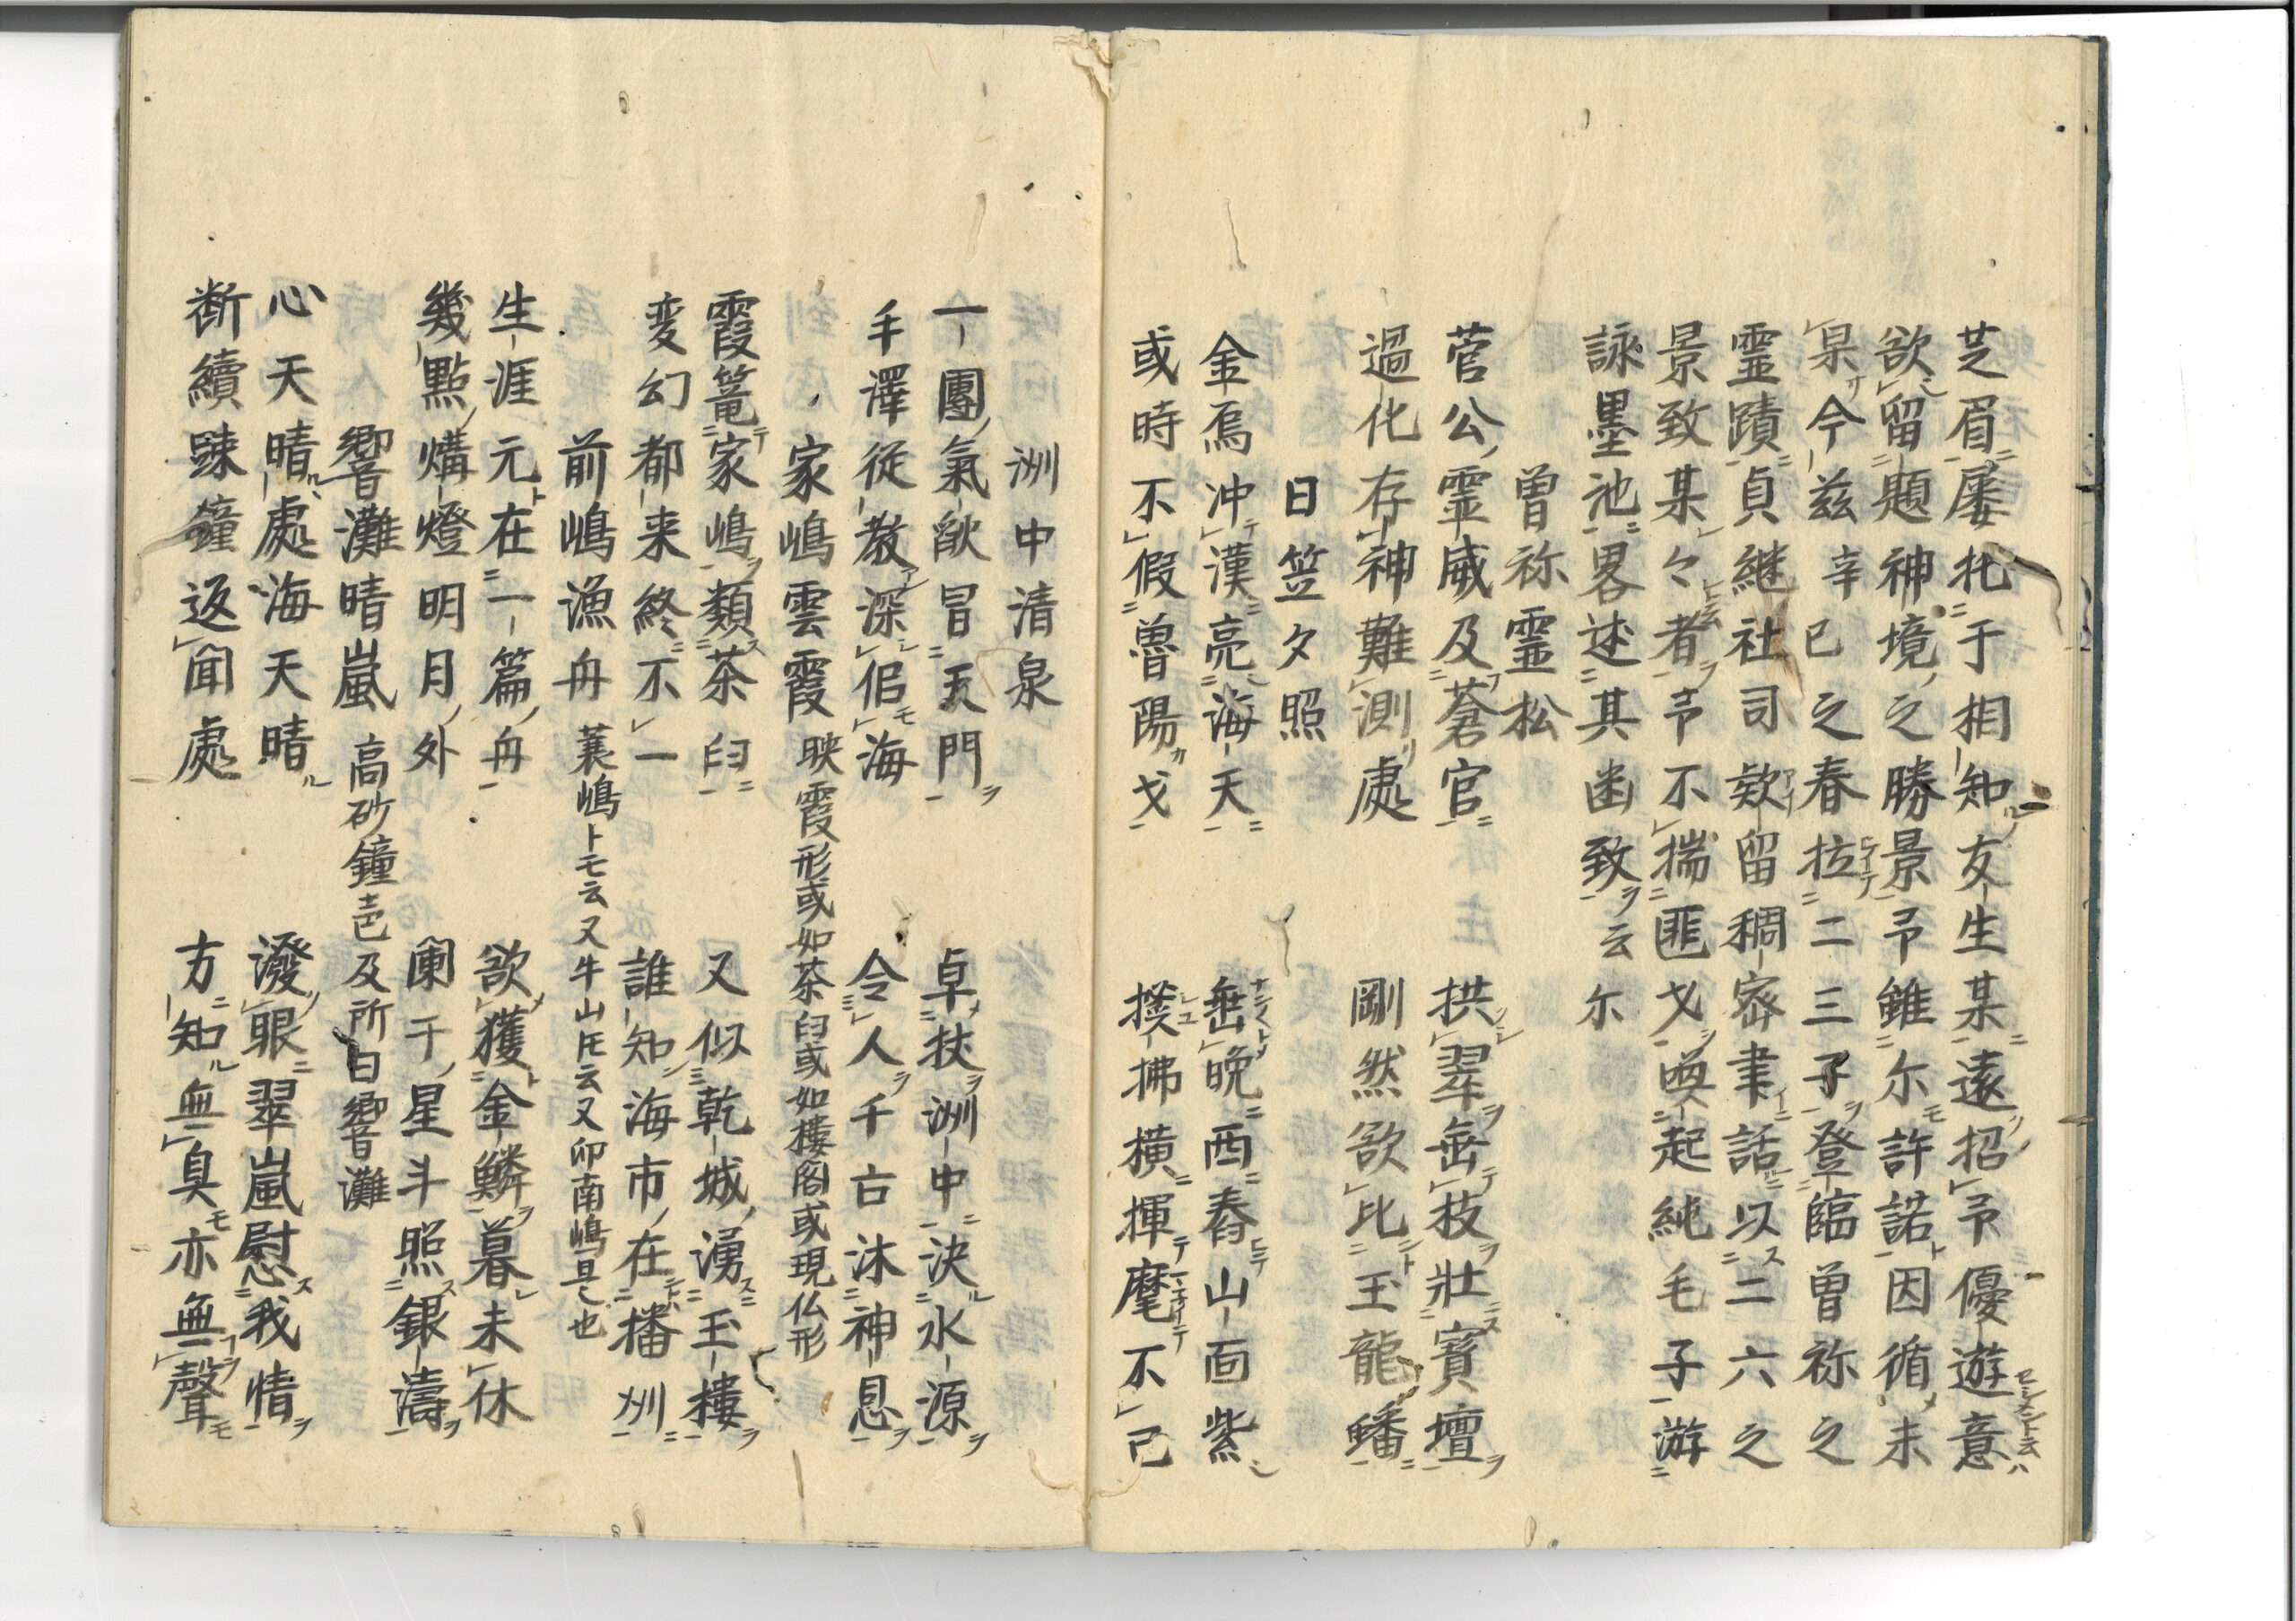 芝眉屡托于相知友生某遠招予優遊意
欲留題神境之勝景予雖尓許諾因循未
果今茲辛巳之春拉二三子登臨曽祢之
霊蹟貞継社司欵留稠密聿話以二六之
景致某々者予不揣匪戈喚起純毛子游
詠墨池畧述其幽致云尓
曽祢霊松
菅公霊威及蒼官　拱翠垂枝壮寳壇
過化存神難測處　剛然欲比玉龍蟠
日笠夕照
金烏冲漢亮海天　垂晩西舂山面紫
或時不假魯陽戈　撲拂横揮麾不已
洲中清泉
一團氣歊冒天門　卓扙洲中決水源
手澤従教深侣海　令人千古沐神息
家嶋雲霞　映霞形或如茶臼或如樓閣或現仏形
霞篭家嶋類茶臼　又似乾城湧玉樓
変幻都来終不一　誰知海市在播州
前嶋漁舟　蓑嶋トモ云又牛山𪜈云又卯南嶋是也
生涯元在一篇舟　欲獲金鱗暮未休
幾點燐燈明月外　闌干星斗照銀濤
響灘晴嵐　高砂鐘壱及所曰響灘
心天晴處海天晴　潑眼翠嵐慰我情
断續踈鐘返聞處　方知無臭亦無聲